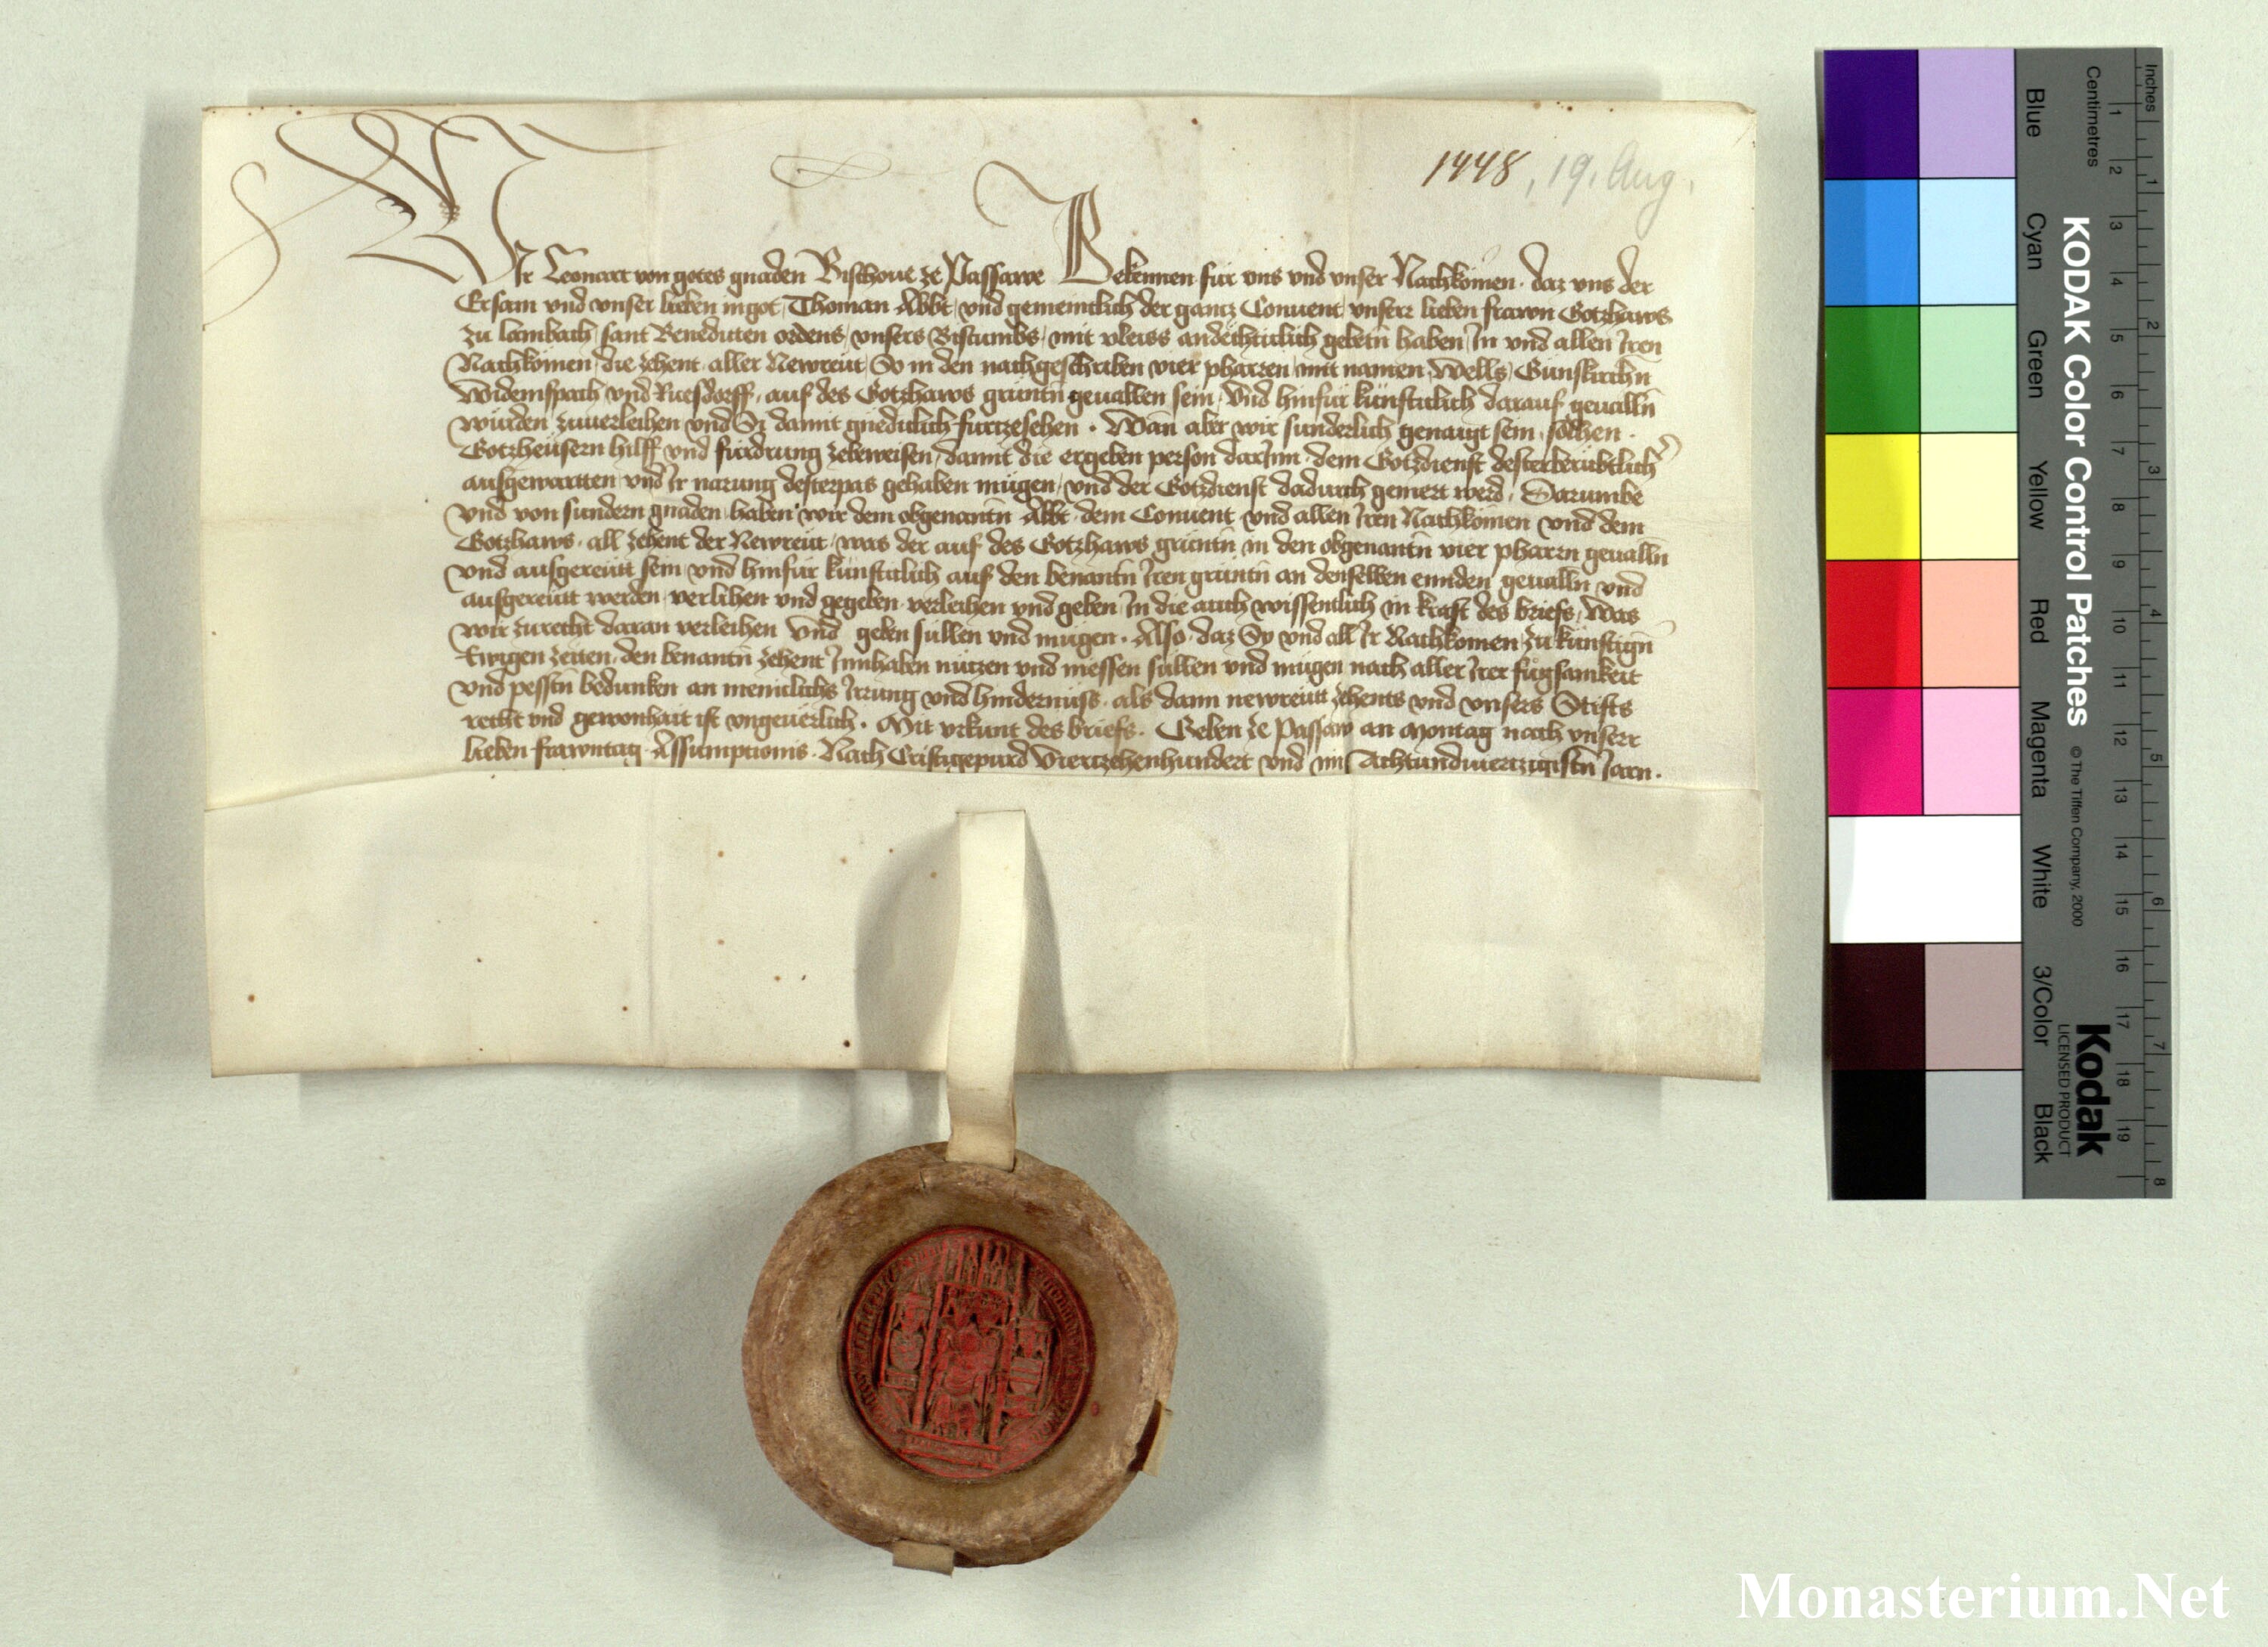 1448, 19. Aug.
Wir Leonart von gotes gnaden Bischoue ze Passawe Bekennen fur vns vnd vnser Nachkomen. daz vns der
Ersam vnd vnser lieben in got, Thoman Abbt, vnd gemeinklich der gantz Conuent vnserr lieben frawn Gotzhaws
zu lambach, sant Benedicten ordens, vnsers Bistumbs, mit vleiss andechtiklich gebetn haben, In vnd allen Iren
Nachkomen, die zehent aller Newreut, So in den nachgeschriben vier pharren, mit namen, Wells, Gunskirchn
vnd auf des Gotzhaws gruntn geuallen sein, Vnd hinfur kunftiklich darauf geualln
wurden, zuuerleihen vnd Si damit gnediklich furtzesehen. Wan aber wir sunderlich genaigt sein, solhen
Gotzheusern hilff vnd furdrung zebeweisen, damit die ergeben person darInn, dem Gotzdienst
ausgewartten vnd Ir narung desterpas gehaben mugen, vnd der Gotzdienst dadurch gemert werd, Darumbe
vnd von sundern gnaden, haben wir dem obgenantn Abbt, dem Conuent vnd allen Iren Nachkomen vnd dem
Gotzhaws, all zehent der Newreut, was der auf des Gotzhaws gruntn in den obgenantn vier pharrn geualln
vnd ausgereutt sein vnd hinfur kunftiklich auf den benantn Iren gruntn an denselben ennden geualln vnd
ausgereutt werden, verlihen vnd gegeben, verleihen vnd geben In die auch wissentlich in kraft des briefs, Was
wir zurecht daran verleihen Vnd geben sullen vnd mugen. Also, daz Sy vnd all Ir Nachkomen, zu kunftign
Ewigen zeiten, den benantn zehent Innhaben nutzen vnd niessen sullen vnd mugen nach aller Irer fugsamkeit
vnd pesstn bedunken an meniklichs Irrung vnd hindernuss, als dann newreutt zehents vnd vnsers Stifts
recht vnd gewonhait ist vngeuerlich. Mit vrkunt des briefs. Geben ze Passaw an Montag nach vnserr
lieben frawntag Assumptionis. Nach Cristigepurd Viertzehenhundert vnd im Achtundviertzigistn Jarn.
Inches
Centimetres
1
2
3
4
5
6
7
8
9
10
11
12
13
14
15
16
17
18
19
1
2
3
4
5
6
7
8
KODAK Color Control Patches
© The Tiffen Company, 2000
Kodak
LICENSED PRODUCT
Blue
Cyan
Green
Yellow
Red
Magenta
White
3/Color
Black
Monasterium.Net